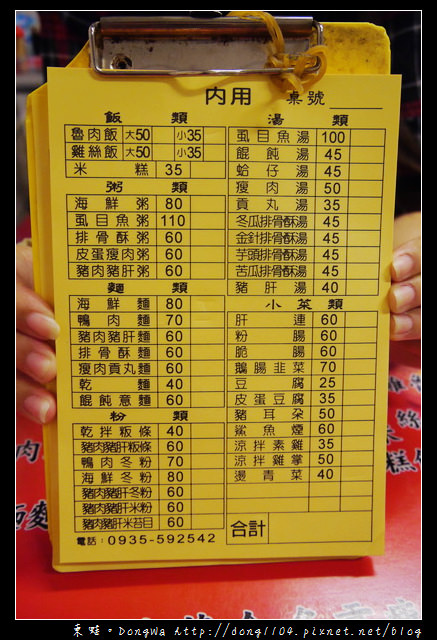 內用 桌號
飯類
魯肉飯 大50 小35
雞絲飯 大50 小35
米糕 35
粥類
海鮮粥 80
虱目魚粥 110
排骨酥粥 60
皮蛋瘦肉粥 60
豬肉豬肝粥 60
麵類
海鮮麵 80
鴨肉麵 70
豬肉豬肝麵 60
排骨酥麵 60
瘦肉貢丸麵 60
乾麵 40
餛飩意麵 60
粉類
乾拌粄條 40
豬肉豬肝粄條 60
鴨肉冬粉 70
海鮮冬粉 80
豬肉豬肝冬粉 60
豬肉豬肝米粉 60
豬肉豬肝米苔目 60
電話：0935-592542
湯類
虱目魚湯 100
餛飩湯 45
蛤仔湯 45
瘦肉湯 50
貢丸湯 35
冬瓜排骨酥湯 45
金針排骨酥湯 45
芋頭排骨酥湯 45
苦瓜排骨酥湯 45
豬肝湯 40
小菜類
肝連 60
粉腸 60
脆腸 60
鵝腸韭菜 70
豆腐 25
皮蛋豆腐 35
豬耳朵 50
鯊魚煙 60
涼拌素雞 35
涼拌雞掌 50
燙青菜 40
合計
東蛙。DongWa http://dong1104.pixnet.net/blog